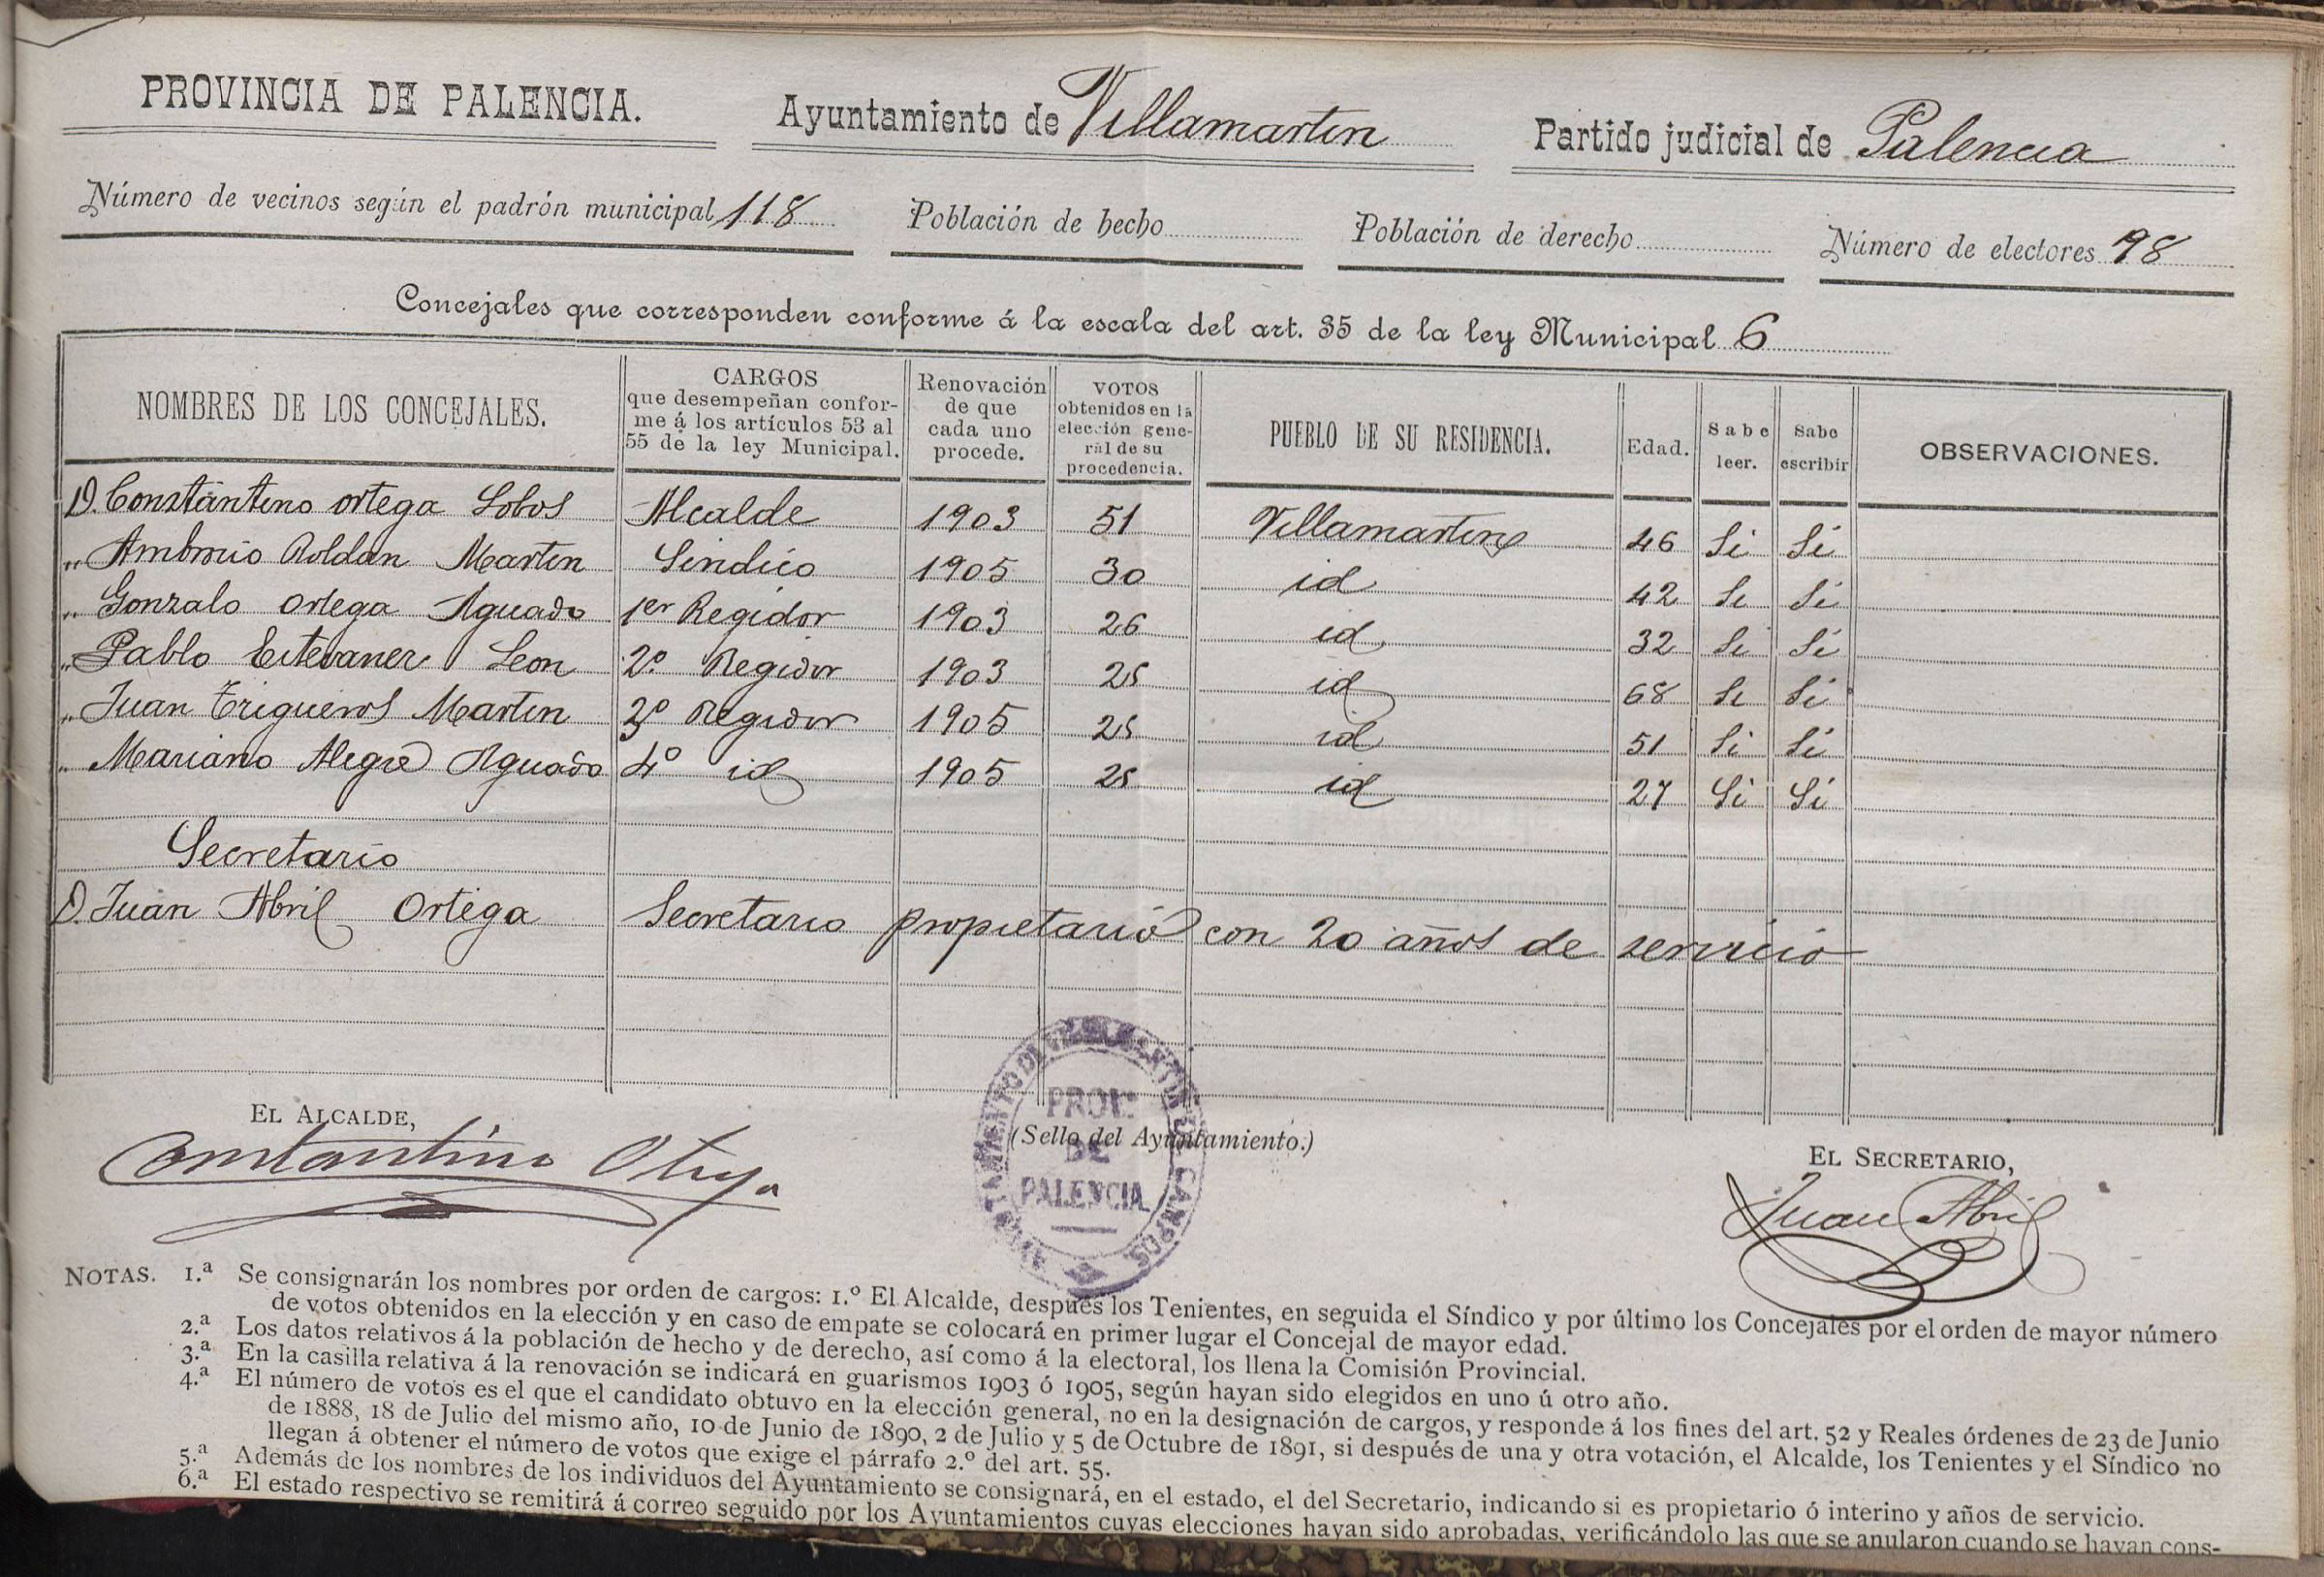 PROVINCIA DE PALENCIA. Ayuntamiento de Villamartin Partido judicial de Palencia
Número de vecinos según el padrón municipal 118 Población de hecho Población de derecho Número de electores 98
Concejales que corresponden conforme á la escala del art. 35 de la ley Municipal 6
NOMBRES DE LOS CONCEJALES. CARGOS que desempeñan confor- me á los artículos 53 al 55 de la ley Municipal. Renovación de que cada uno procede. VOTOS obtenidos en la elección gene- ral de su procedencia. PUEBLO DE SU RESIDENCIA. Edad. Sabe leer. Sabe escribir OBSERVACIONES.
D. Constantino Ortega Lobos Alcalde 1903 51 Villamartin 46 Si Si
" Ambrosio Roldan Martin Sindico 1905 30 id 42 Si Si
" Gonzalo Ortega Aguado 1er Regidor 1903 26 id 32 Si Si
" Pablo Estevanez Leon 2º Regidor 1903 25 id 68 Si Si
" Juan Trigueros Martin 3º Regidor 1905 25 id 51 Si Si
" Mariano Alegre Aguado 4º id 1905 25 id 27 Si Si
Secretario
D. Juan Abril Ortega Secretario propietario con 20 años de servicio
EL ALCALDE,
Constantino Ortega
(Sello del Ayuntamiento.)
AYUNTAMIENTO DE VILLAMARTIN DE CAMPOS.
PROVª
DE
PALENCIA
EL SECRETARIO,
Juan Abril
NOTAS. 1.ª Se consignarán los nombres por orden de cargos: 1.º El Alcalde, después los Tenientes, en seguida el Síndico y por último los Concejales por el orden de mayor número
de votos obtenidos en la elección y en caso de empate se colocará en primer lugar el Concejal de mayor edad.
2.ª Los datos relativos á la población de hecho y de derecho, así como á la electoral, los llena la Comisión Provincial.
3.ª En la casilla relativa á la renovación se indicará en guarismos 1903 ó 1905, según hayan sido elegidos en uno ú otro año.
4.ª El número de votos es el que el candidato obtuvo en la elección general, no en la designación de cargos, y responde á los fines del art. 52 y Reales órdenes de 23 de Junio
de 1888, 18 de Julio del mismo año, 10 de Junio de 1890, 2 de Julio y 5 de Octubre de 1891, si después de una y otra votación, el Alcalde, los Tenientes y el Síndico no
llegan á obtener el número de votos que exige el párrafo 2.º del art. 55.
5.ª Además de los nombres de los individuos del Ayuntamiento se consignará, en el estado, el del Secretario, indicando si es propietario ó interino y años de servicio.
6.ª El estado respectivo se remitirá á correo seguido por los Ayuntamientos cuyas elecciones hayan sido aprobadas, verificándolo las que se anularon cuando se hayan cons-